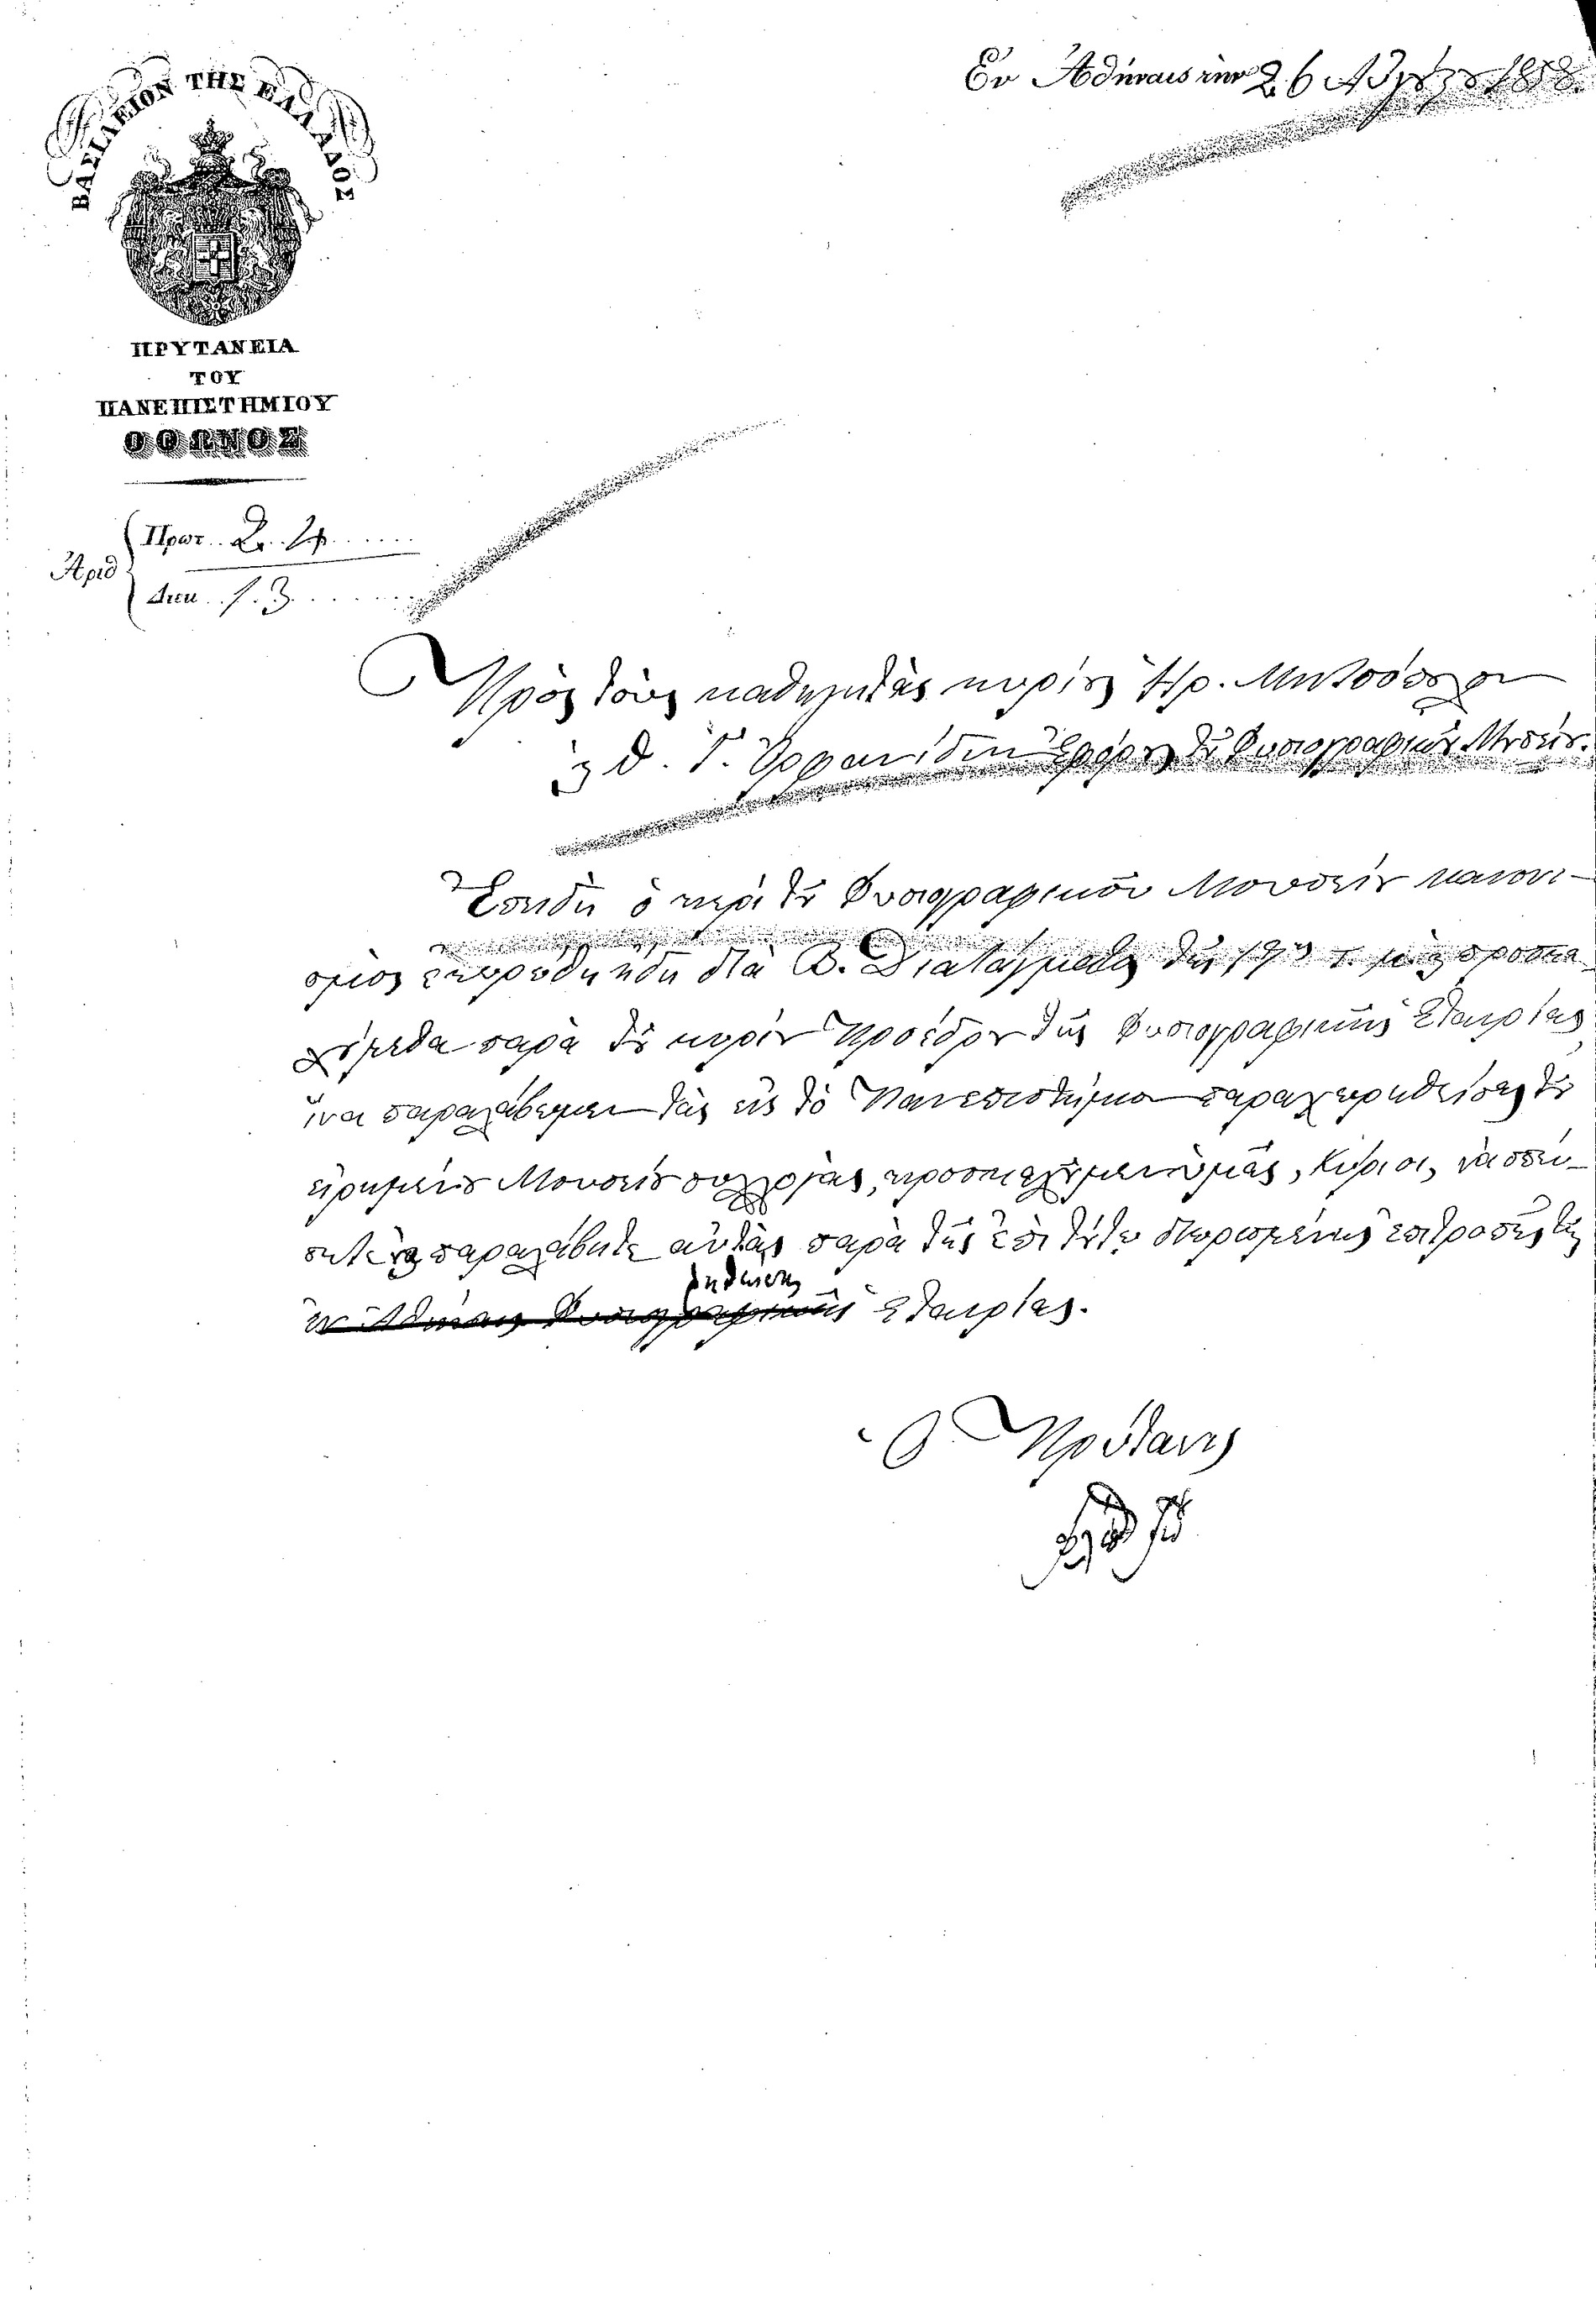 Ἐν Ἀθήναις τὴν 26 Αὐγούστου 1858.
ΒΑΣΙΛΕΙΟΝ ΤΗΣ ΕΛΛΑΔΟΣ
ΠΡΥΤΑΝΕΙΑ
ΤΟΥ
ΠΑΝΕΠΙΣΤΗΜΙΟΥ
ΟΘΩΝΟΣ
Ἀριθ
Πρωτ. 24
Διεκ. 13
Πρὸς τοὺς καθηγητὰς κυρίους Ἡρ. Μητσόπουλον
καὶ Θ. Γ. Ὀρφανίδην Ἐφόρους τοῦ Φυσιογραφικοῦ Μουσείου.
Ἐπειδὴ ὁ περὶ τοῦ Φυσιογραφικοῦ Μουσείου κανονι-
σμὸς ἐκυρώθη ἤδη διὰ Β. Διατάγματος τῆς 19ης τ. μ. καὶ προσκα
λούμεθα παρὰ τοῦ κυρίου Προέδρου τῆς Φυσιογραφικῆς Ἑταιρίας
ἵνα παραλάβωμεν τὰς εἰς τὸ Πανεπιστήμιον παραχωρηθείσας τοῦ
εἰρημένου Μουσείου συλλογάς, προσκαλοῦμεν ὑμᾶς, Κύριοι, νὰ σπεύ-
σητε νὰ παραλάβητε αὐτὰς παρὰ τῆς ἐπὶ τούτῳ διωρισμένης ἐπιτροπῆς τῆς
ῥηθείσης
ἐν Ἀθήναις Φυσιογραφικῆς Ἑταιρίας.
Ὁ Πρύτανις